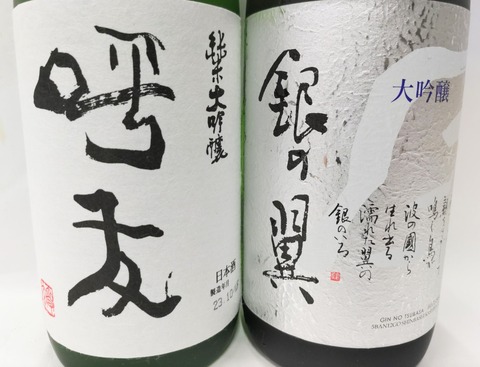 呼友
純米大吟醸
日本酒
製造年月
23.10
銀の翼
大吟醸
鳴く鳥で
波の圃から
生れ出る
濡れた翼の
銀のいろ
GIN NO TSUBASA